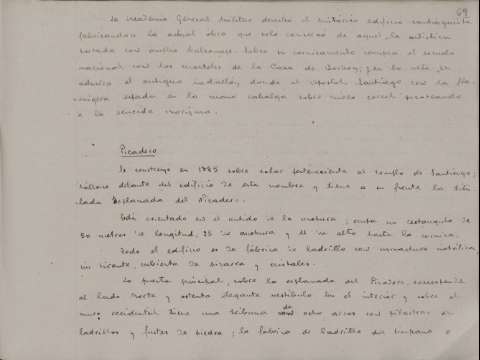 69
La Academia General Militar derribó el histórico edificio santiaguista
fabricando la actual obra que solo conservó de aquel, la artística
portada con amplio balconaje. Sobre su cornisamento campea el escudo
nacional con los cuarteles de la Casa de Borbón; y en lo alto, se
admira el antiguo medallón, donde el apóstol Santiago con la
espada en la mano cabalga sobre níveo corcel pisoteando
a la vencida morisma.
Picadero
Se construyó en 1885 sobre solar perteneciente al templo de Santiago;
delante del edificio de este nombre y tiene a su frente la
explanada del Picadero.
Está orientado en el sentido de la anchura; ocupa un rectángulo de
50 metros de longitud, 25 de anchura y 11 de alto hasta la cornisa.
Todo el edificio es de fábrica de ladrillo con armadura metálica
cubierta de pizarra y cristales.
La puerta principal, sobre la explanada del Picadero, corresponde
al lado Norte y ostenta elegante vestíbulo en el interior y sobre el
muro occidental tiene una tribuna de ocho arcos con pilastras de
ladrillos y fustes de piedra; la fábrica de ladrillo del